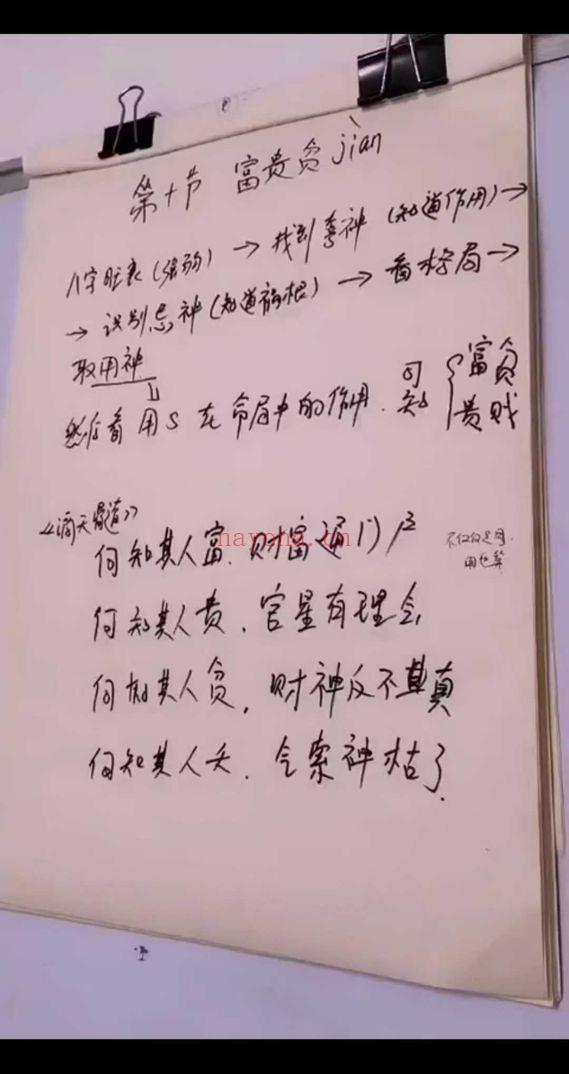 第十节 富贵贫jiàn
八字旺衰(强弱) → 找到喜神(知道作用) →
→ 识别忌神(知道病根) → 看格局 →
取用神
然后看用S在命局中的作用. 可知 { 富贫
贵贱
《滴天髓道》
何知其人富. 财富通门户
不仅仅是月.
何知其人贵. 官星有理会
何知其人贫. 财神反不真
何知其人夭. 气索神枯了.
nayona.cn